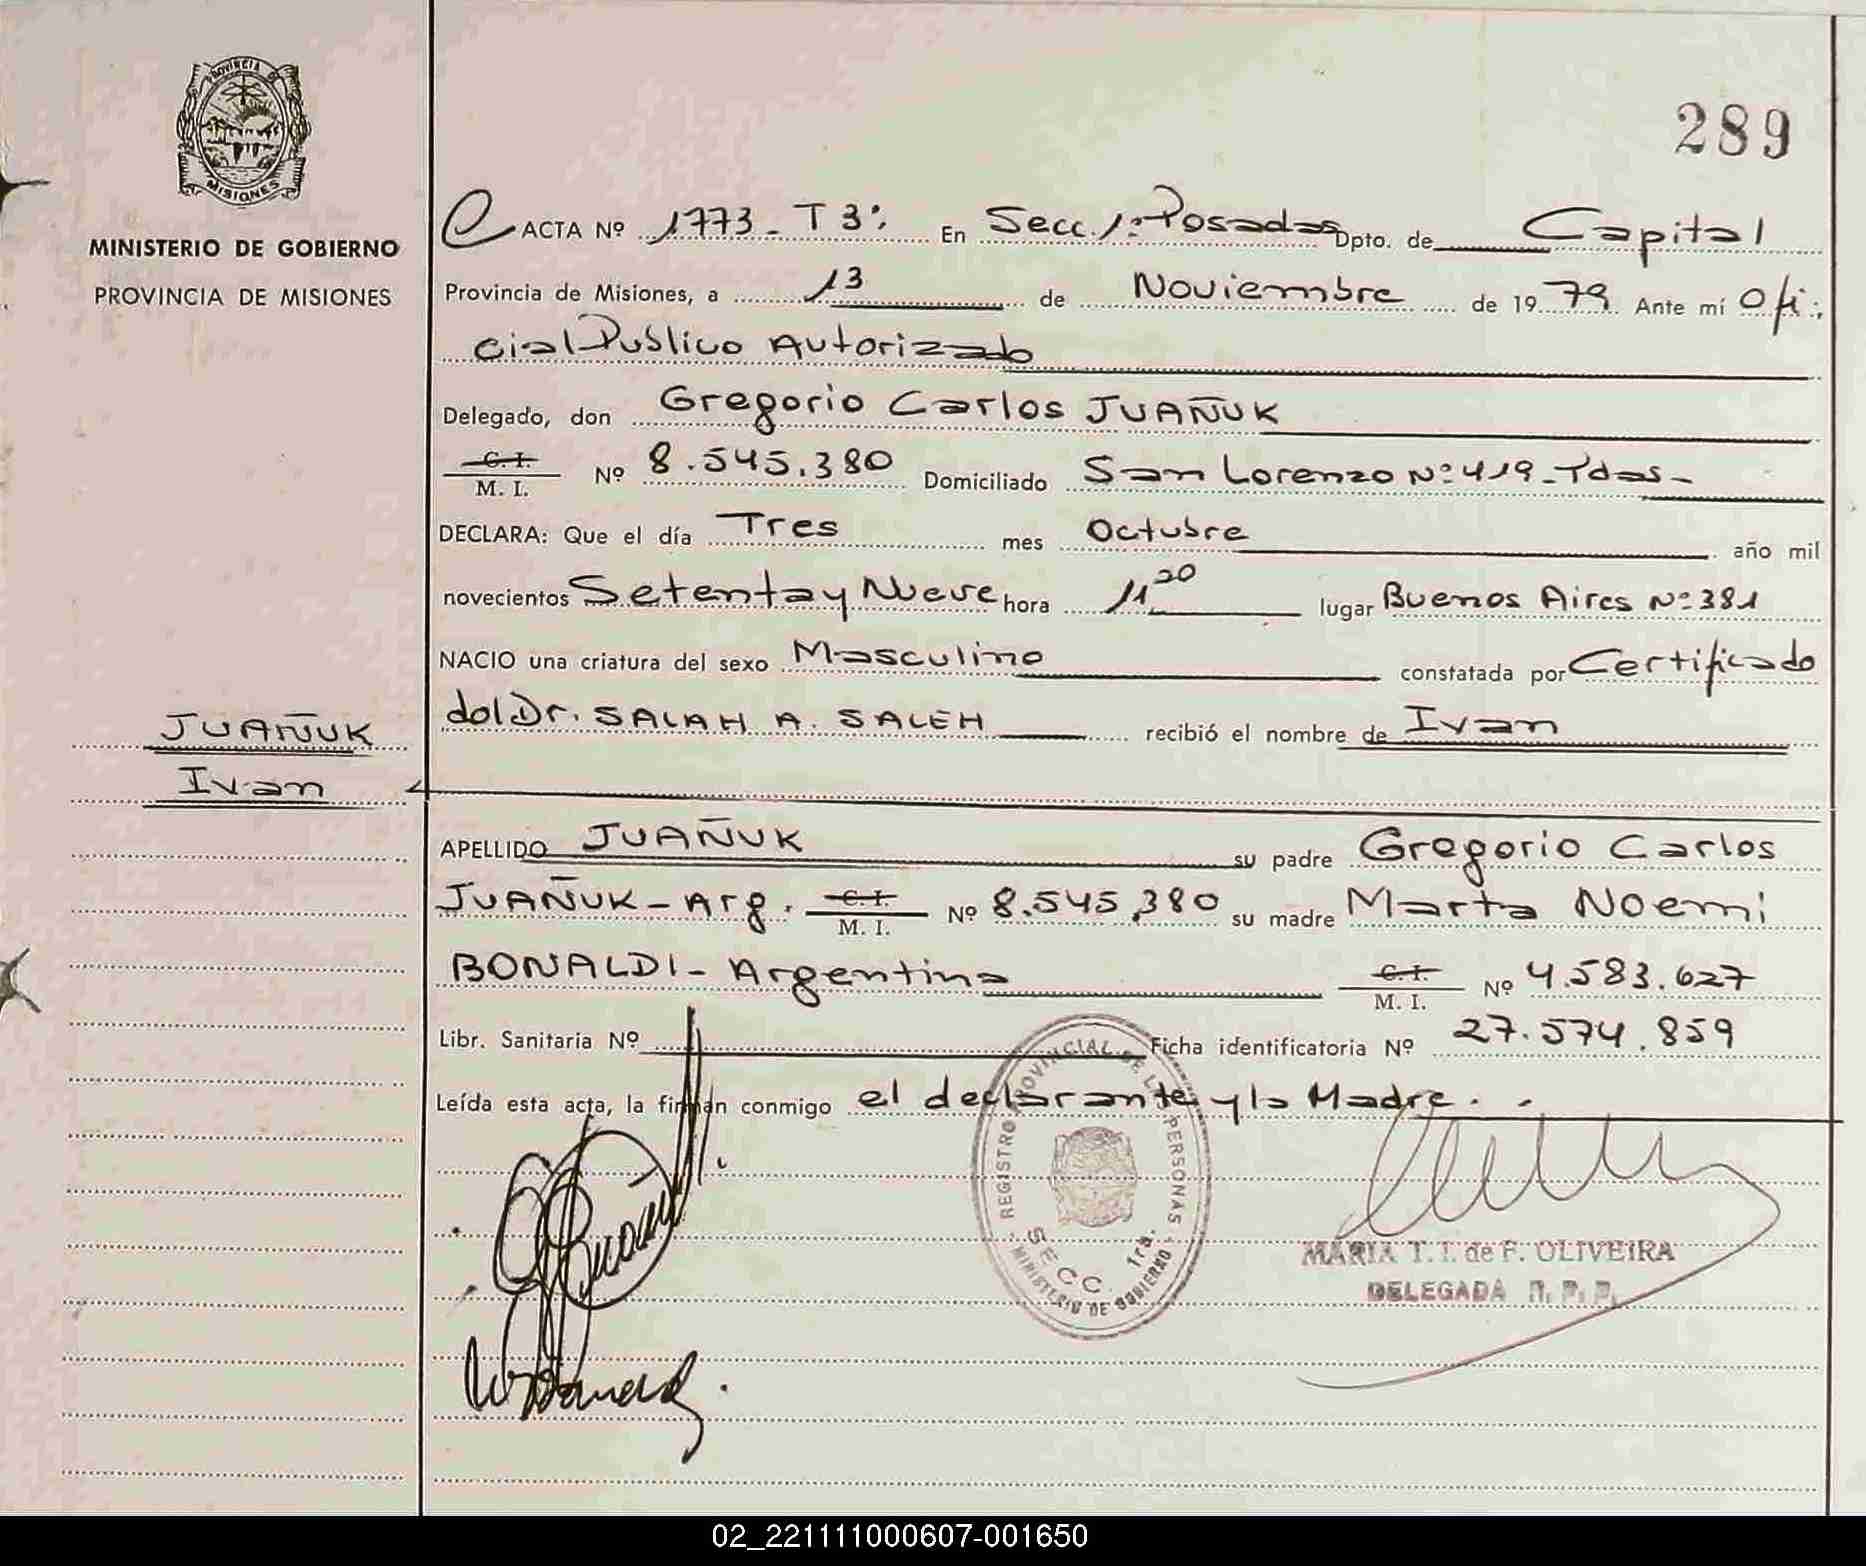 PROVINCIA DE
MISIONES
MINISTERIO DE GOBIERNO
PROVINCIA DE MISIONES
289
ACTA Nº 1773 - T 3º. En Secc. 1ª Posadas Dpto. de Capital
Provincia de Misiones, a 13 de Noviembre de 1979 Ante mí Ofi-
cial Publico Autorizado
Delegado, don Gregorio Carlos JUAÑUK
C. I.
M. I. Nº 8.545.380 Domiciliado San Lorenzo Nº 419 - Pdas -
DECLARA: Que el día Tres mes Octubre año mil
novecientos Setenta y Nueve hora 11 20 lugar Buenos Aires Nº 381
NACIO una criatura del sexo Masculino constatada por Certificado
del Dr. SALAH A. SALEH recibió el nombre de Ivan
JUAÑUK
Ivan
APELLIDO JUAÑUK su padre Gregorio Carlos
JUAÑUK - Arg. C. I.
M. I. Nº 8.545.380 su madre Marta Noemi
BONALDI - Argentina C. I.
M. I. Nº 4.583.627
Libr. Sanitaria Nº Ficha identificatoria Nº 27.574.859
Leída esta acta, la firman conmigo el declarante y la Madre.
REGISTRO PROVINCIAL DE LAS PERSONAS
SECC. 1ra.
MINISTERIO DE GOBIERNO
MARIA T. I. de F. OLIVEIRA
DELEGADA R. P. P.
02_221111000607-001650